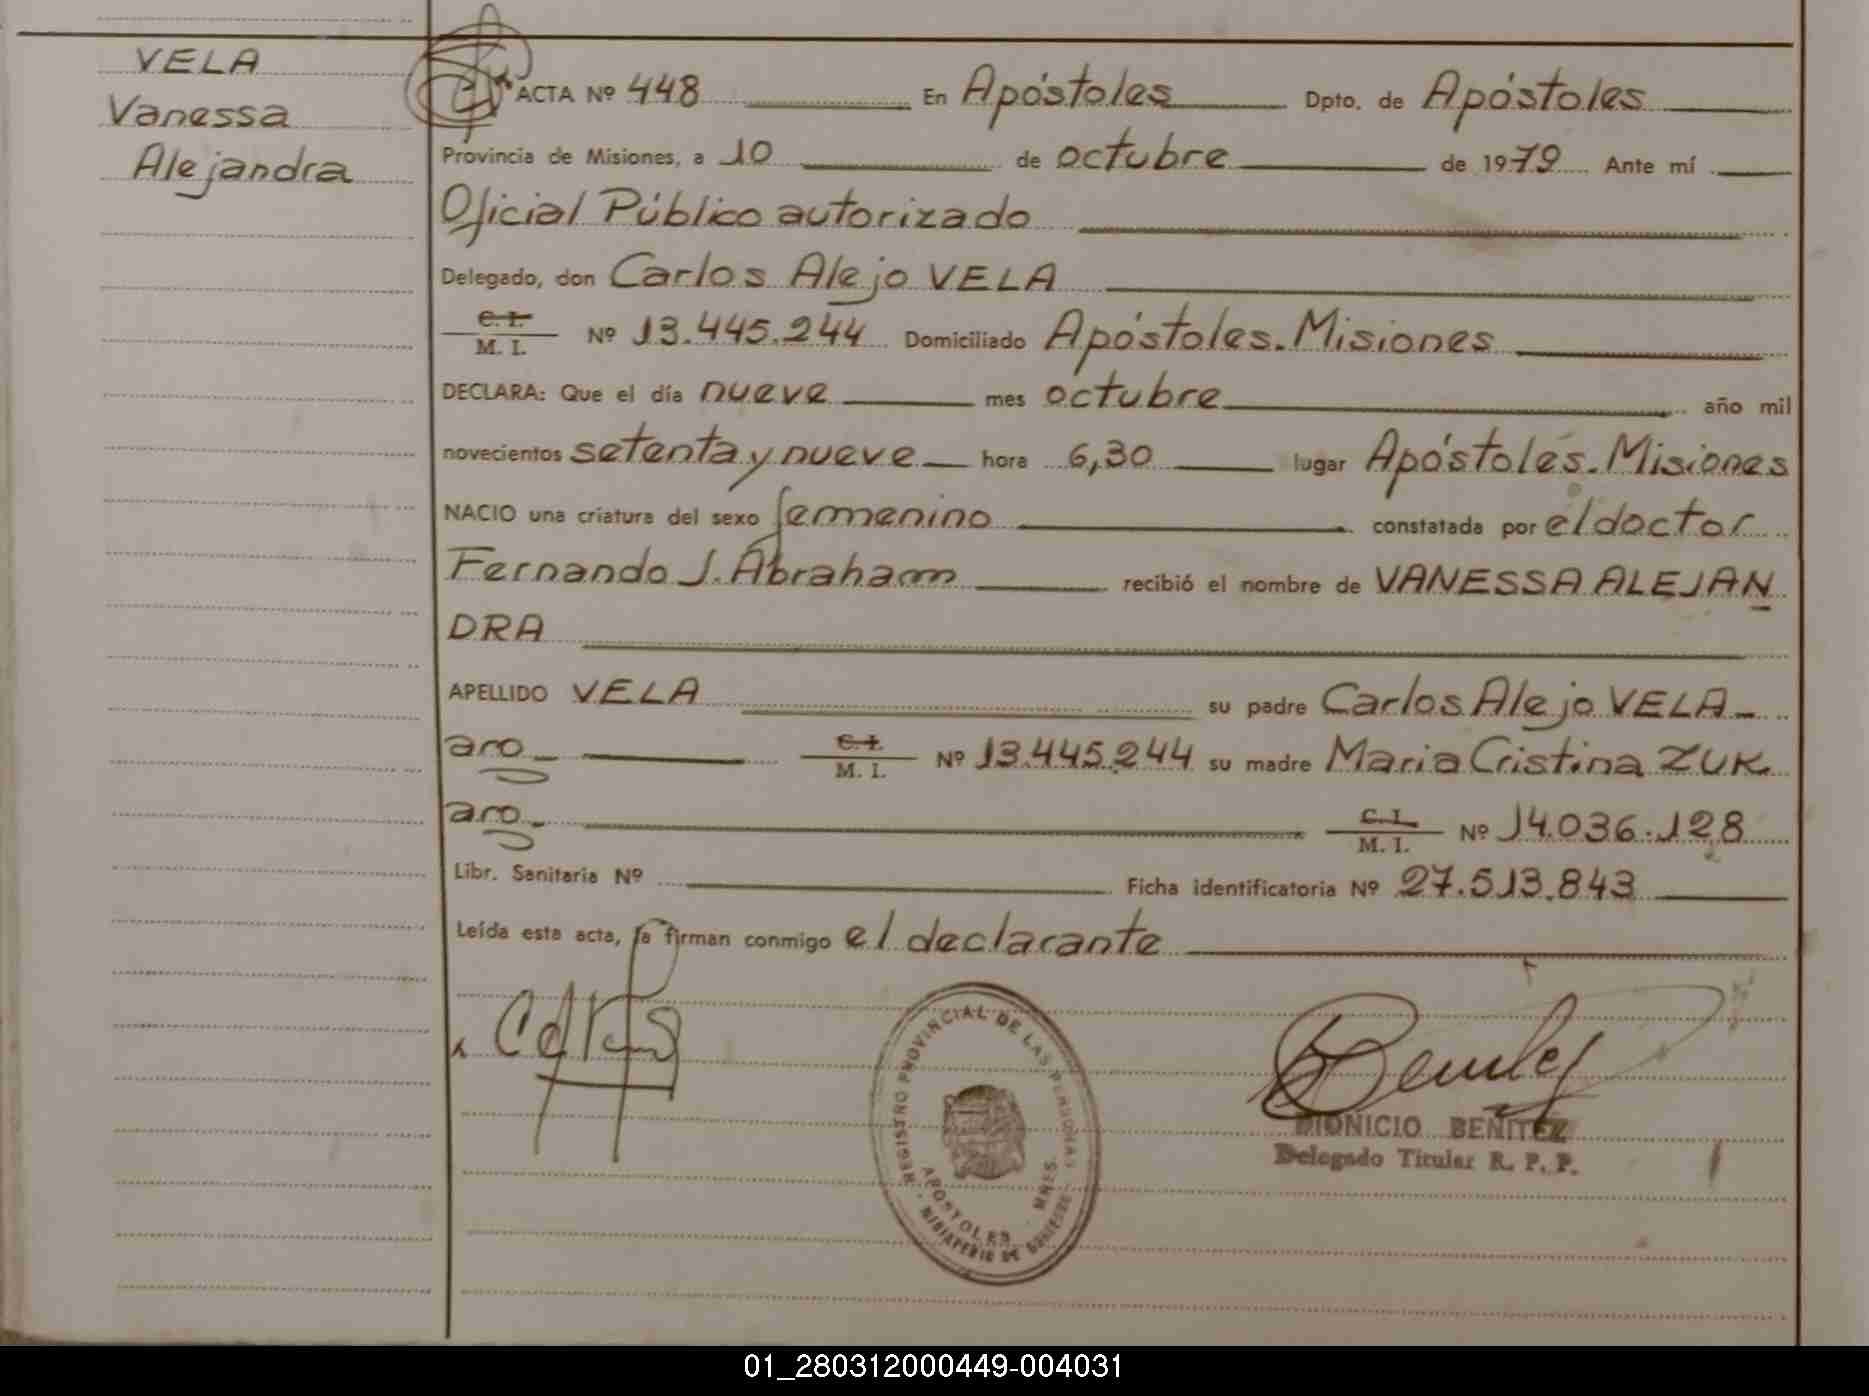 VELA
Vanessa
Alejandra
ACTA Nº 448 En Apóstoles Dpto. de Apóstoles
Provincia de Misiones, a 10 de octubre de 1979 Ante mí
Oficial Público autorizado
Delegado, don Carlos Alejo VELA
C. I.
M. I. Nº 13.445.244 Domiciliado Apóstoles. Misiones
DECLARA: Que el día nueve mes octubre año mil
novecientos setenta y nueve hora 6,30 lugar Apóstoles. Misiones
NACIO una criatura del sexo femenino constatada por el doctor
Fernando J. Abraham recibió el nombre de VANESSA ALEJAN
DRA
APELLIDO VELA su padre Carlos Alejo VELA
aro C. I.
M. I. Nº 13.445.244 su madre Maria Cristina ZUK
aro C. I.
M. I. Nº 14.036.128
Libr. Sanitaria Nº Ficha identificatoria Nº 27.513.843
Leída esta acta, la firman conmigo el declarante
REGISTRO PROVINCIAL DE LAS PERSONAS
APOSTOLES - MNES.
MINISTERIO DE GOBIERNO
DIONICIO BENITEZ
Delegado Titular R. P. P.
01_280312000449-004031